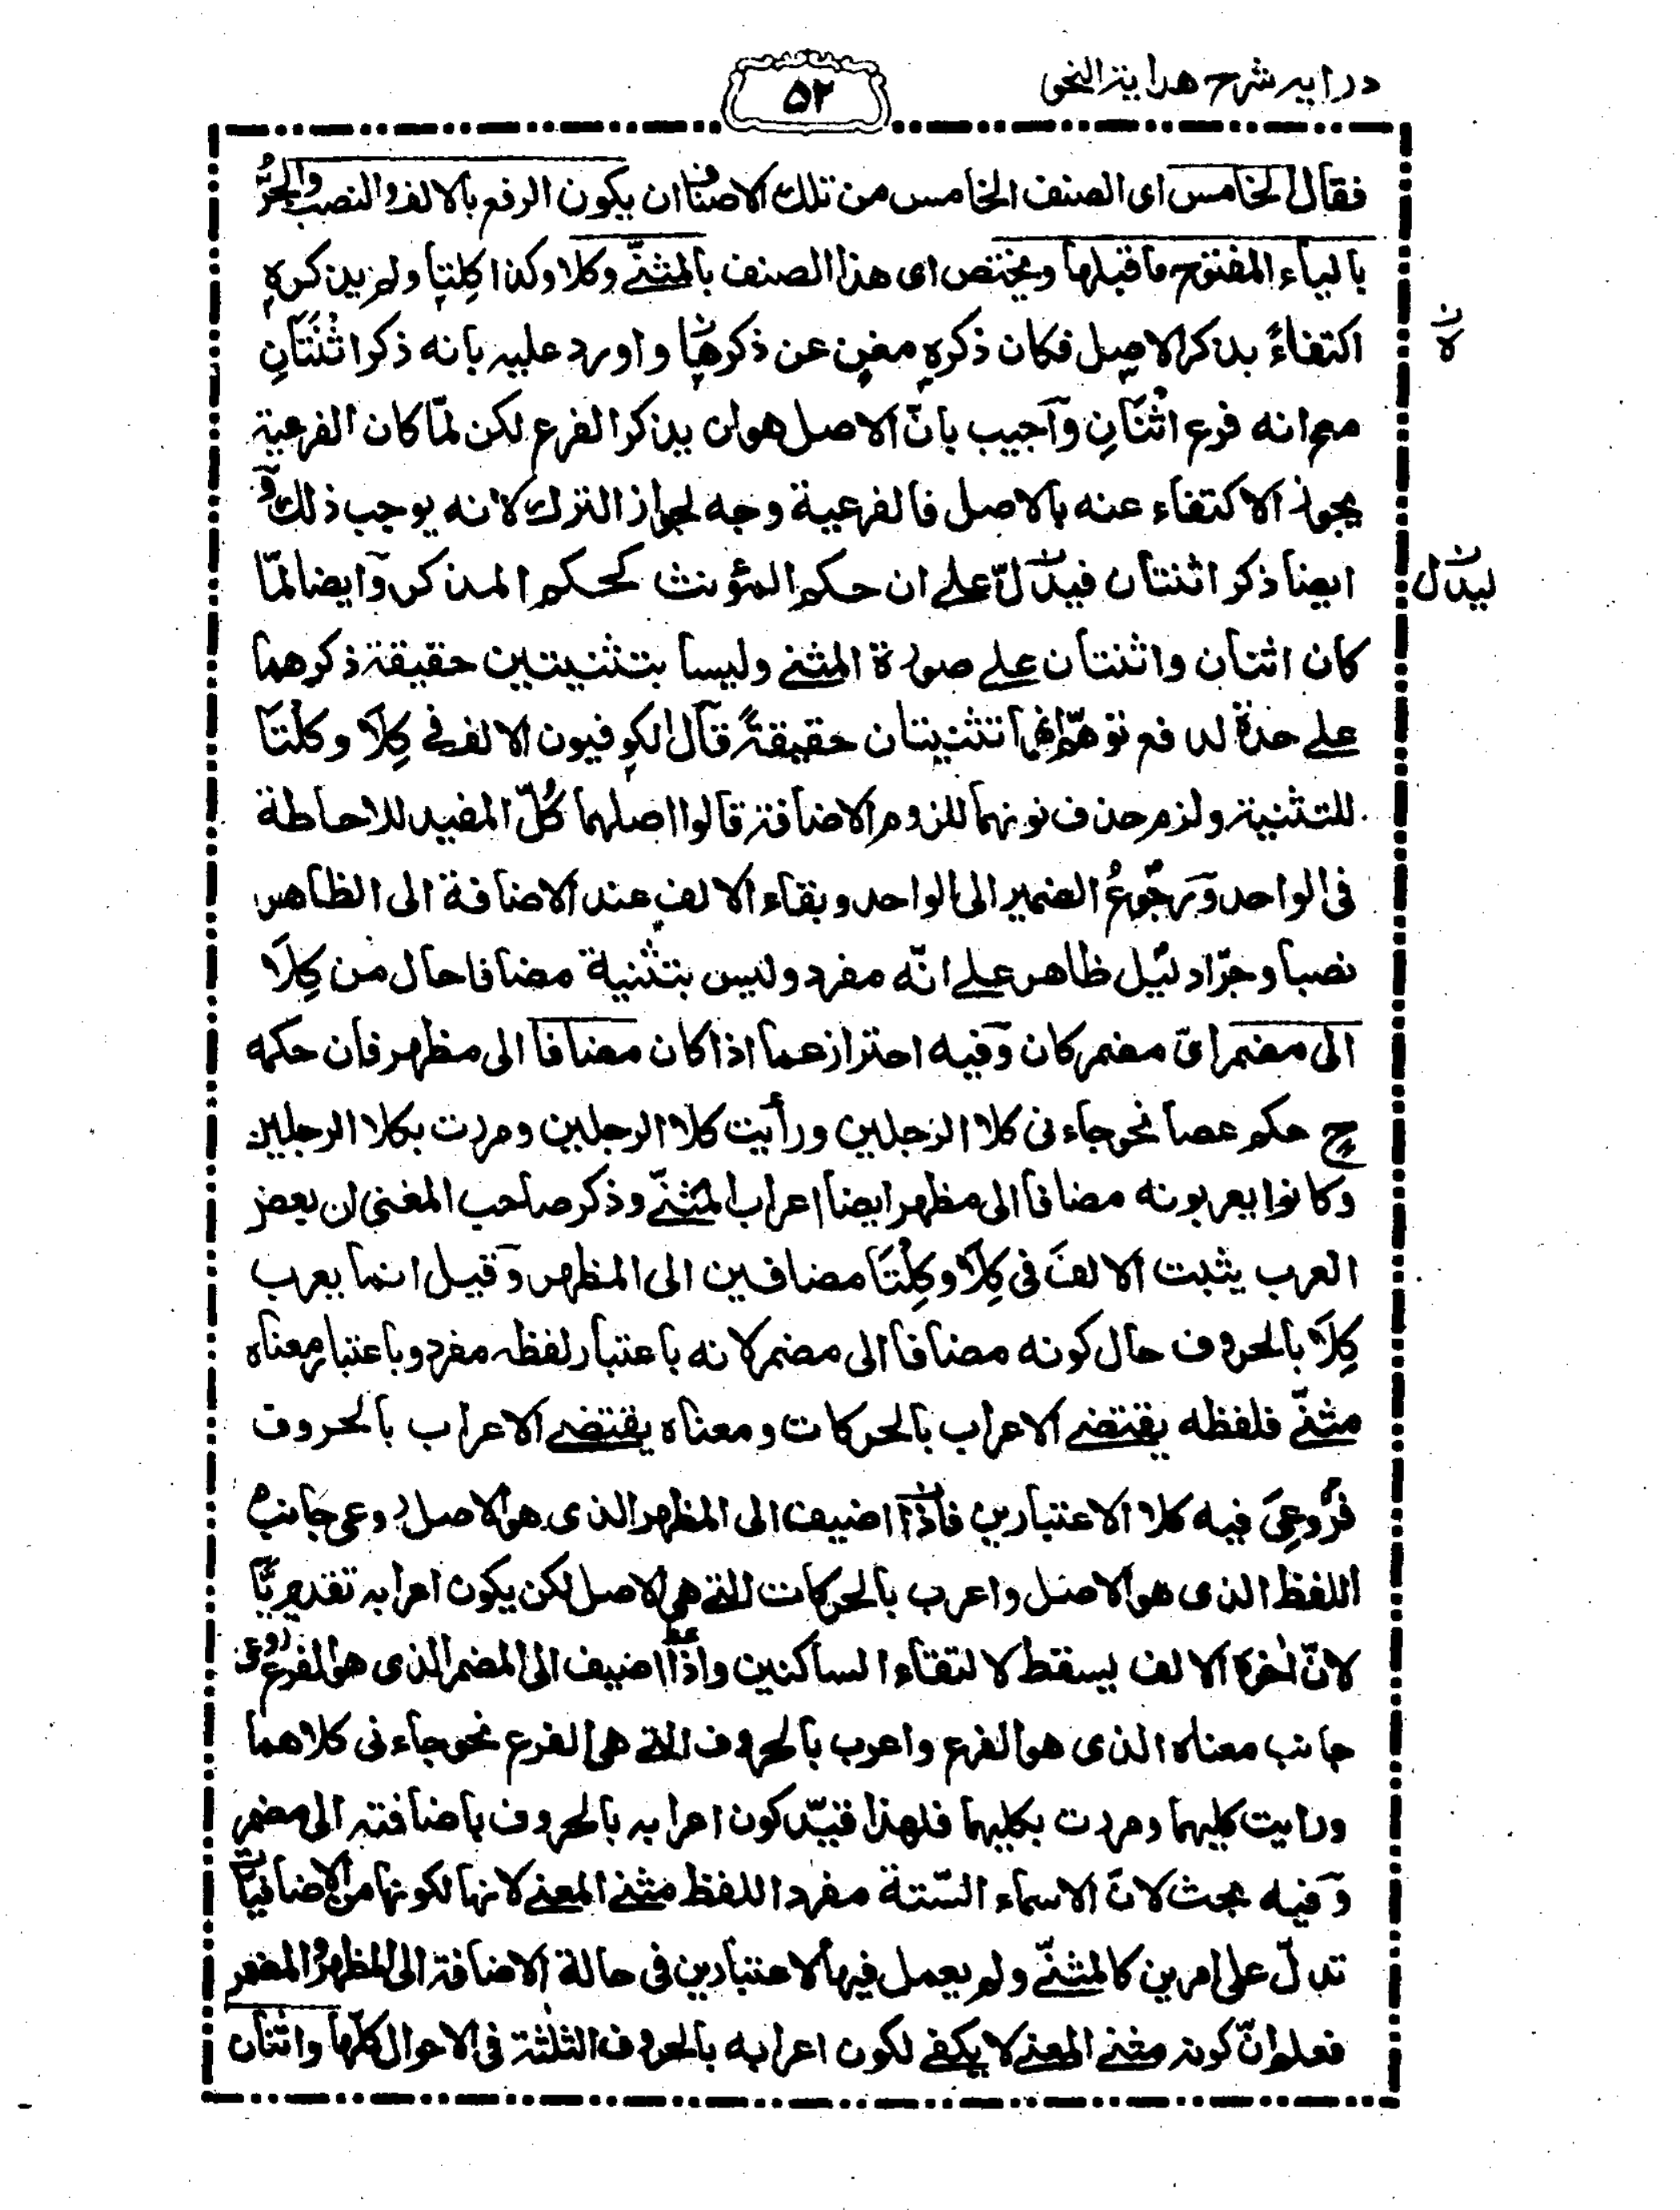 درایہ شرح هدایۃ النحو
۵۲
فقال الخامس ای الصنف الخامس من تلك الاصناف ان یكون الرفع بالالف والنصب والجرُّ
بالیاء المفتوح ماقبلها ویختص ای هذا الصنف بالمثنّے وكلا وكذا كِلتا ولم یذكره
اكتفاءً بذكر الاصل فكان ذكره مغنٍ عن ذكرها واورد علیه بانه ذكر اثنتَانِ
ۃ
مع انه فرع اثنَانِ وآجیب بانّ الاصل هو ان یذكر الفرع لكن لمّا كان الفرعیة
یجوز الاكتفاء عنه بالاصل فالفرعیة وجه لجواز الترك لا انه یوجب ذلك وَ
ایضا ذكر اثنتان فیدلّ علے ان حكم المؤنث كحكم المذكر وآیضا لمّا
لیدل
كان اثنان واثنتان علے صورة المثنے ولیسا بتثنیتین حقیقة ذكرهما
علے حدة لدفع توهّم انهما تثنیتان حقیقةً قال الكوفیون الالف فی كِلَا وكلْتَا
للتثنیة ولزم حذف نونهما للزوم الاضافة قالوا اصلهما كُلّ المفید للاحاطة
فی الواحد وَرجُوعُ الضمیر الی الواحد وبقاء الالف عند الاضافة الی الظاهر
نصبا وجرّا دلیل ظاهر علے انّه مفرد ولیس بتثنیة مضافا حال من كِلَا
الی مضمر ایّ مضمر كان وَفیه احتراز عما اذا كان مضافا الی مظهر فان حكمه
ح حكم عصا نحو جاءنی كلا الرجلین ورأیت كلا الرجلین ومررت بكلا الرجلین
وكانوا یعربونه مضافا الی مظهر ایضا اعراب المثنّے وذكر صاحب المغنی ان بعض
العرب یثبت الالفَ فی كِلَا وكِلْتَا مضافین الی المظهر وَقیل انما یعرب
كِلَا بالحروف حال كونه مضافا الی مضمر لانه باعتبار لفظه مفرد وباعتبار معناه
مثنّے فلفظه یقتضے الاعراب بالحركات ومعناه یقتضے الاعراب بالحروف
فرُوعِیَ فیه كلا الاعتبارین فاذا اضیف الی المظهر الذی هو الاصل روعی جانب
اللفظ الذی هو الاصل واعرب بالحركات التے هی الاصل لكن یكون اعرابه تقدیریًّا
لانّ اخره الالف یسقط لالتقاء الساكنین واذا اضیف الی المضمر الذی هو الفرع روعی
جانب معناه الذی هو الفرع واعرب بالحروف التے هی الفرع نحو جاءنی كلاهما
ورایت كلیهما ومررت بكلیهما فلهذا قیّد كون اعرابه بالحروف باضافته الی مضمر
وَفیه بحث لانّ الاسماء السّتة مفرد اللفظ مثنے المعنے لانها لكونها من الاضافیات
تدلّ علی امرین كالمثنّے ولم یعمل فیها الاعتبارین فی حالة الاضافة الی المظهر والمضمر
فعلم انّ كونه مثنے المعنے لا یكفے لكون اعرابه بالحروف الثلثة فی الاحوال كلّها واثنان